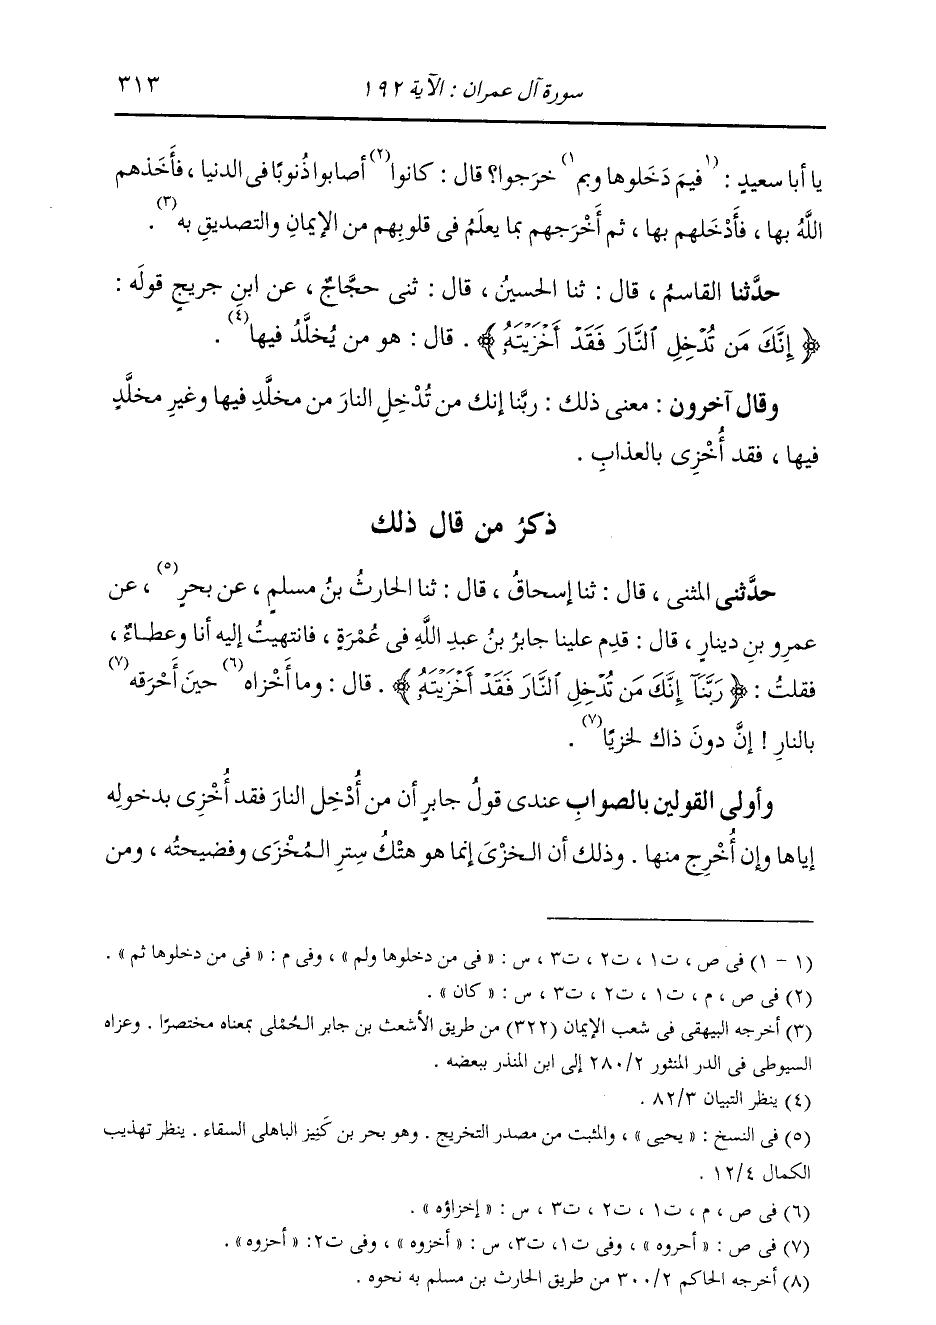 سورة آل عمران : الآية ١٩٢
٣١٣
يا أبا سعيدٍ : (١ فيمَ دَخَلوها وبم ١) خرَجوا؟ قال : كانوا(٢) أصابوا ذُنوبًا فى الدنيا ، فأَخَذهم
اللَّهُ بها ، فأَدْخَلهم بها ، ثم أَخْرَجهم بما يعلَمُ فى قلوبِهم من الإيمانِ والتصديقِ به(٣) .
حدَّثنا القاسمُ ، قال : ثنا الحسينُ ، قال : ثنى حجَّاجٌ ، عن ابنِ جريجٍ قولَه :
﴿ إِنَّكَ مَن تُدْخِلِ ٱلنَّارَ فَقَدْ أَخْزَيْتَهُۥ ﴾ . قال : هو من يُخلَّدُ فيها(٤) .
وقال آخرون : معنى ذلك : ربَّنا إنك من تُدْخِلِ النارَ من مخلَّدِ فيها وغيرِ مخلَّدٍ
فيها ، فقد أُخْزِى بالعذابِ .
ذكرُ من قال ذلك
حدَّثنى المثنى ، قال : ثنا إسحاقُ ، قال : ثنا الحارثُ بنُ مسلمٍ ، عن بحرٍ(٥) ، عن
عمرِو بنِ دينارٍ ، قال : قدِم علينا جابرُ بنُ عبدِ اللَّهِ فى عُمْرَةٍ ، فانتهيتُ إليه أنا وعطاءٌ ،
فقلتُ : ﴿ رَبَّنَآ إِنَّكَ مَن تُدْخِلِ ٱلنَّارَ فَقَدْ أَخْزَيْتَهُۥ ﴾ . قال : وما أَخْزاه(٦) حينَ أَحْرَقه(٧)
بالنارِ ! إنَّ دونَ ذاك لخزيًا(٧) .
وأولى القولين بالصوابِ عندى قولُ جابرٍ أن من أُدْخِل النارَ فقد أُخْزِى بدخولِه
إياها وإن أُخْرِج منها . وذلك أن الخزْىَ إنما هو هتْكُ سترِ المُخْزَى وفضيحتُه ، ومن
(١ - ١) فى ص ، ت١ ، ت٢ ، ت٣ ، س : « فى من دخلوها ولم » ، وفى م : « فى من دخلوها ثم » .
(٢) فى ص ، م ، ت١ ، ت٢ ، ت٣ ، س : « كان » .
(٣) أخرجه البيهقى فى شعب الإيمان (٣٢٢) من طريق الأشعث بن جابر الحُمْلى بمعناه مختصرًا . وعزاه
السيوطى فى الدر المنثور ٢/‏٢٨٠ إلى ابن المنذر ببعضه .
(٤) ينظر التبيان ٣/‏٨٢ .
(٥) فى النسخ : « يحيى » ، والمثبت من مصدر التخريج . وهو بحر بن كَنِيز الباهلى السقاء . ينظر تهذيب
الكمال ٤/‏١٢ .
(٦) فى ص ، م ، ت١ ، ت٢ ، ت٣ ، س : « إخزاؤه » .
(٧) فى ص : « أحروه » ، وفى ت١، ت٣، س : « أخزوه » ، وفى ت٢: « أحزوه» .
(٨) أخرجه الحاكم ٢/‏٣٠٠ من طريق الحارث بن مسلم به نحوه .